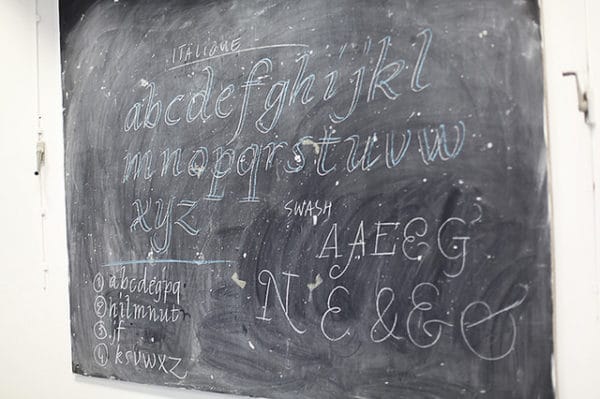 ITALIQUE
abcdefghijkl
mnopqrstuvw
xyz
SWASH
AAEEG
NE&&&
① abcdegpq
② hjlmnut
③ .if
④ ksvwxz